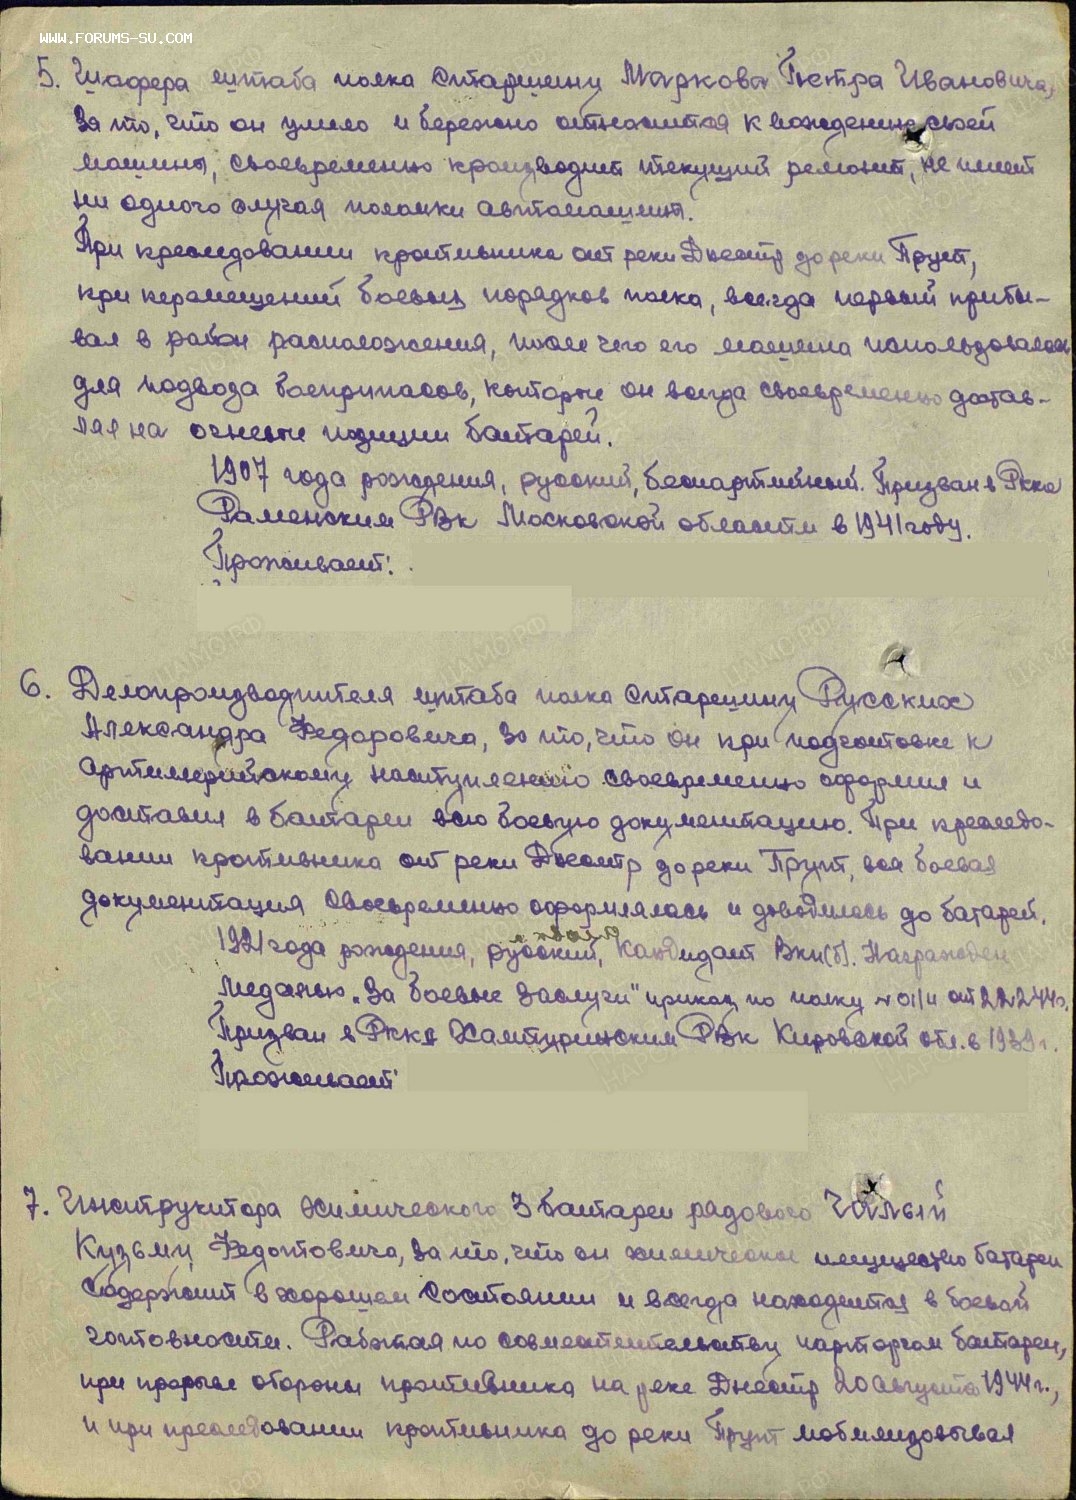 WWW.FORUMS-SU.COM
5. Шофера штаба полка старшину Маркова Петра Ивановича,
за то, что он умело и бережно относится к вождению своей
машины, своевременно производит текущий ремонт, не имеет
ни одного случая поломки автомашин.
При преследовании противника от реки Днестр до реки Прут,
при перемещений боевых порядков полка, всегда первый прибы-
вал в район расположения, после чего его машина использовалась
для подвоза боеприпасов, которые он всегда своевременно достав-
лял на огневые позиции батарей.
1907 года рождения, русский, беспартийный. Призван в Ркка
Раменским РВк Московской области в 1941 году.
Проживает:
6. Делопроизводителя штаба полка старшину Русских
Александра Федоровича, за то, что он при подготовке к
артиллерийскому наступлению своевременно оформил и
доставил в батареи всю боевую документацию. При преследо-
вании противника от реки Днестр до реки Прут, вся боевая
документация своевременно оформлялась и доводилась до батарей.
1921 года рождения, русский, кандидат Вкп(б). Награжден
медалью „За боевые заслуги" приказ по полку №01/н от 22.2.44г.
Призван в Ркка Халтуринским РВк Кировской обл. в 1939г.
Проживает:
7. Инструктора химического 3 батареи рядового Чалый
Кузьму Федотовича, за то, что он химическое имущество батареи
содержит в хорошем состоянии и всегда находится в боевой
готовности. Работая по совместительству парторгом батареи,
при прорыве обороны противника на реке Днестр 20 августа 1944г.,
и при преследовании противника до реки Прут мобилизовывал